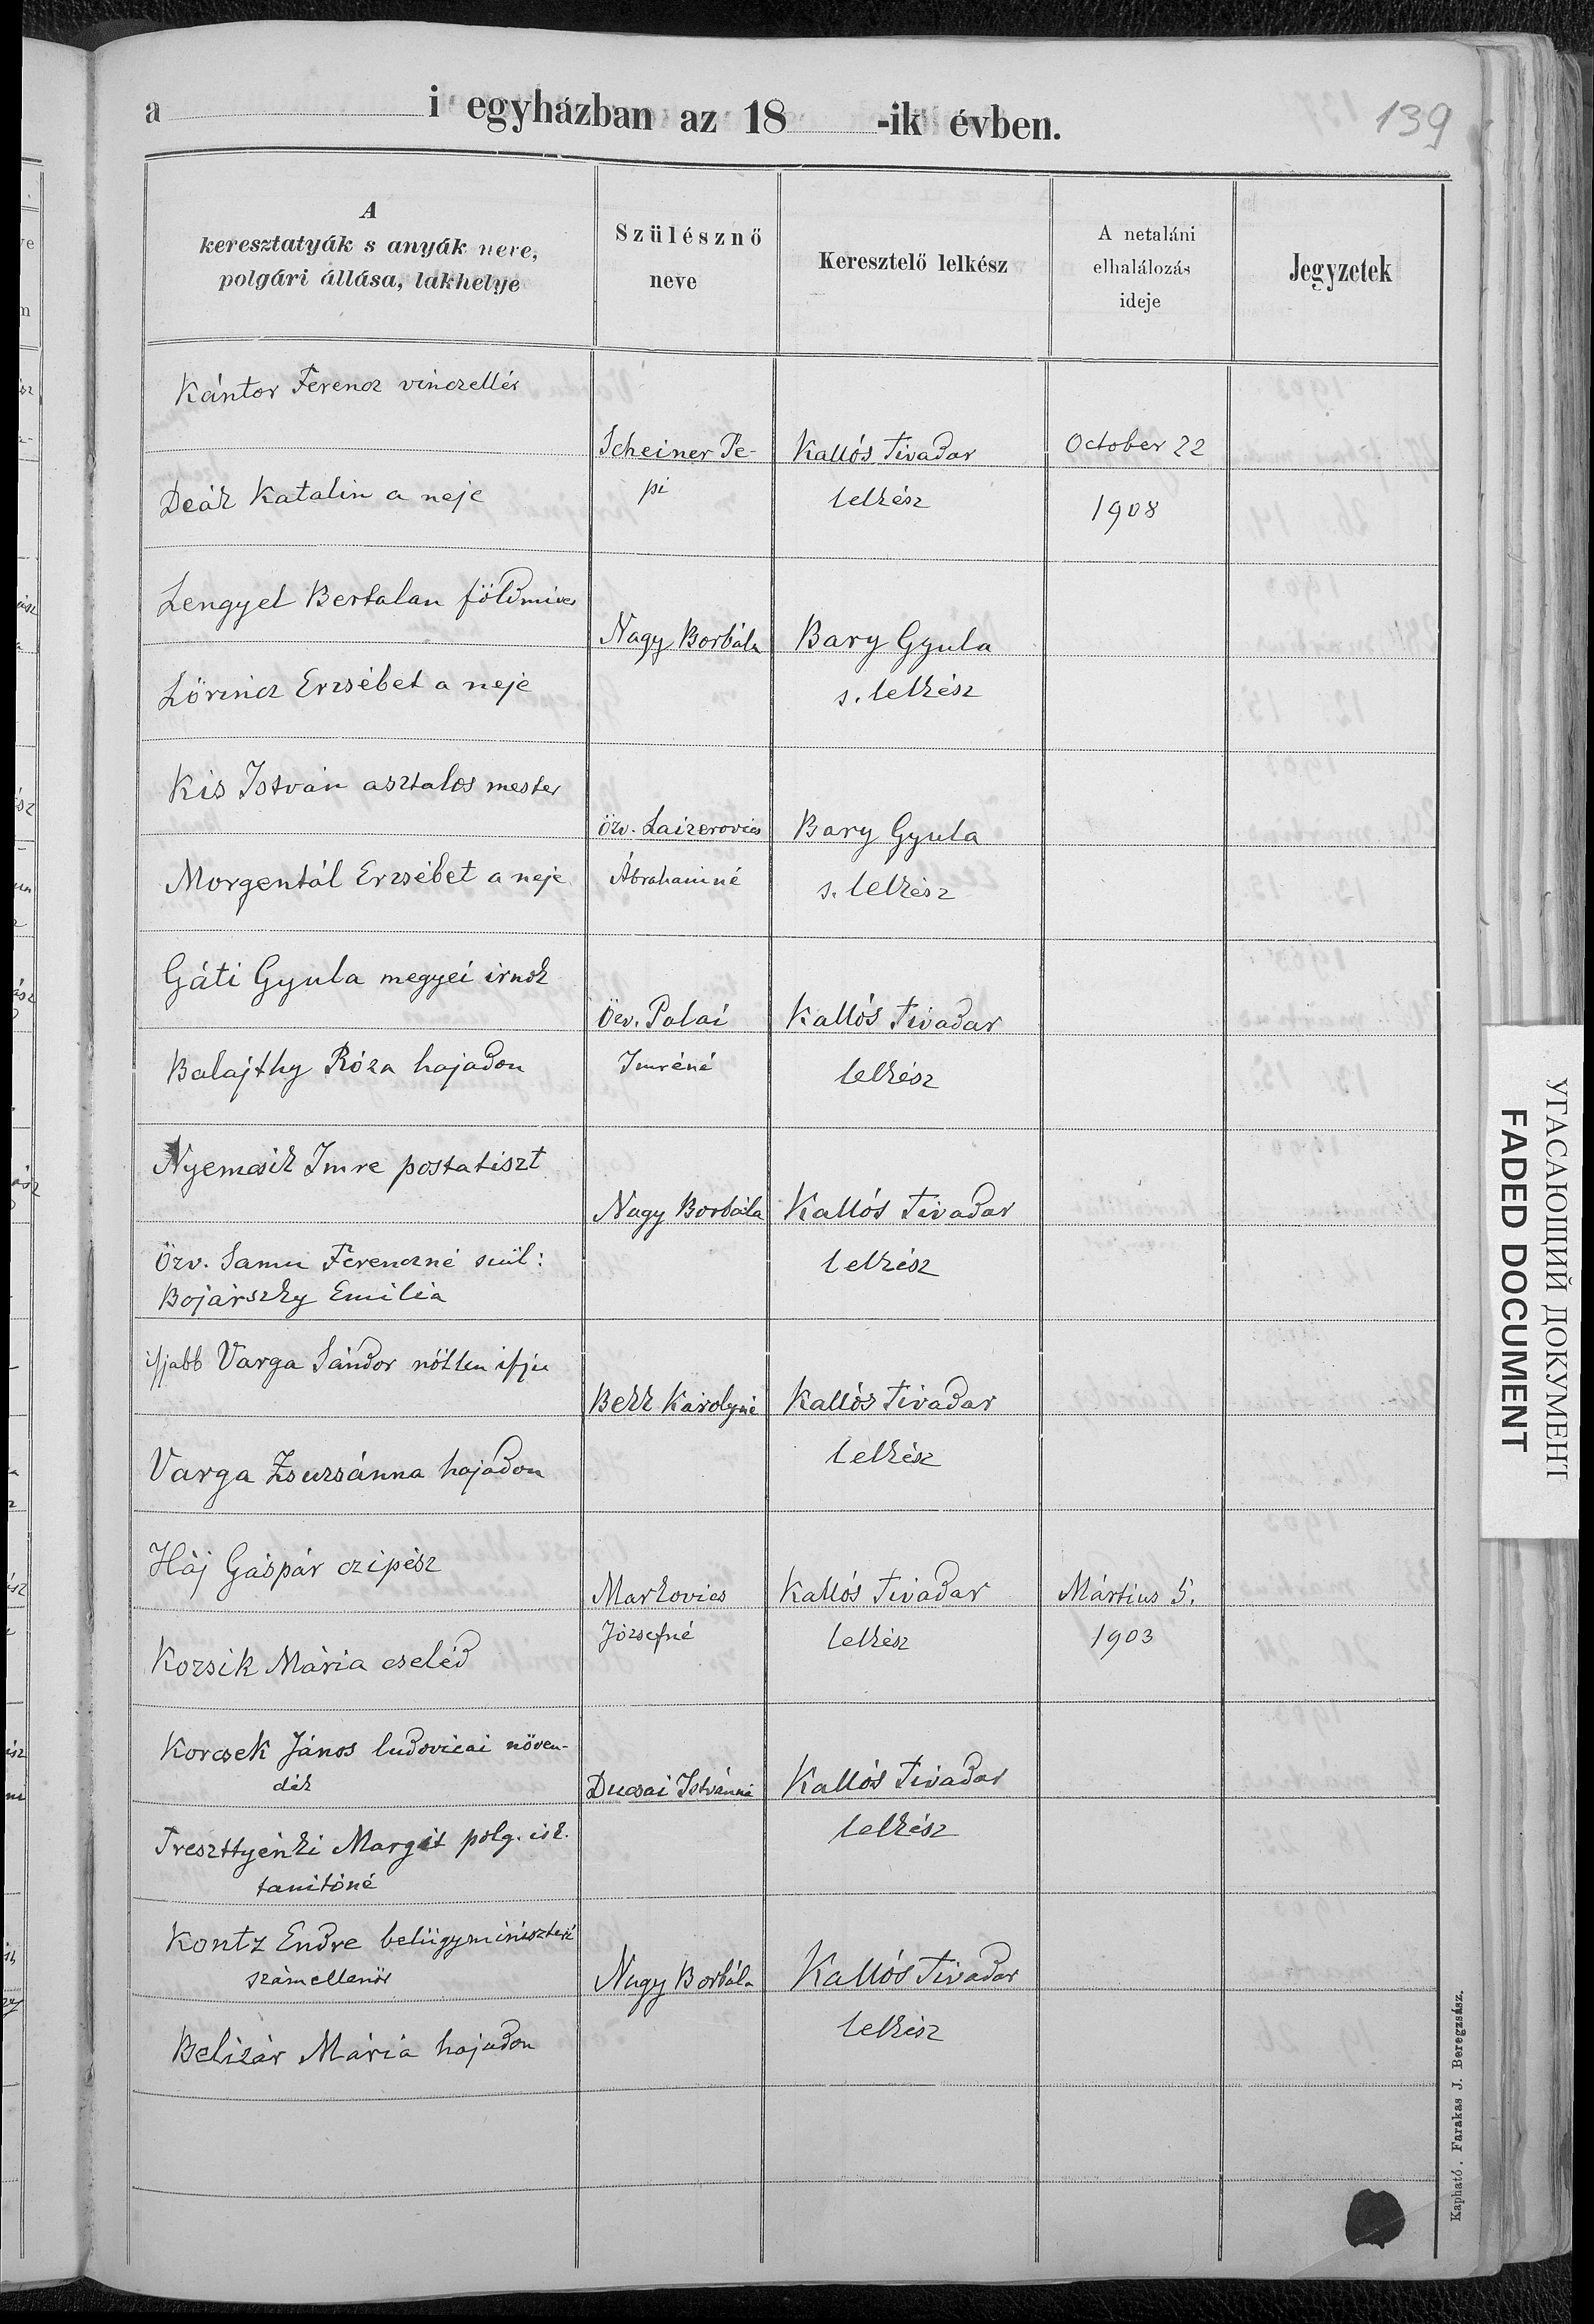 a i egyházban az 18 -ik évben.
139
A
keresztatyák s anyák neve,
polgári állása, lakhelye
Szülésznő
neve
Keresztelő lelkész
A netaláni
elhalálozás
ideje
Jegyzetek
Kántor Ferencz vinczellér
Deák Katalin a neje
Scheiner Pe-
pi
Kallós Tivadar
lelkész
October 22
1908
Lengyel Bertalan földmives
Lörincz Erzsébet a neje
Nagy Borbála
Bary Gyula
s. lelkész
Kis István asztalos mester
Morgentál Erzsébet a neje
özv. Laizerovics
Ábrahámné
Bary Gyula
s. lelkész
Gáti Gyula megyei irnok
Balajthy Róza hajadon
Öz. Palai
Imréné
Kallós Tivadar
lelkész
Nyemcsik Imre postatiszt
Özv. Samu Ferenczné szül:
Bojárszky Emilia
Nagy Borbála
Kallós Tivadar
lelkész
ifjabb Varga Sándor nőtlen ifju
Varga Zsuzsánna hajadon
Bekk Károlyné
Kallós Tivadar
lelkész
Háj Gáspár czipész
Kozsik Mária cseléd
Markovics
Józsefné
Kallós Tivadar
lelkész
Mártius 5.
1903
Korcsek János ludovicai növen-
dék
Treszttyénki Margit polg. isk.
tanitóné
Ducsai Istvánné
Kallós Tivadar
lelkész
Kontz Endre belügyminiszteri
számellenőr
Belizár Mária hajadon
Nagy Borbála
Kallós Tivadar
lelkész
Kapható, Farakas J. Beregzsász.
УГАСАЮЩИЙ ДОКУМЕНТ
FADED DOCUMENT